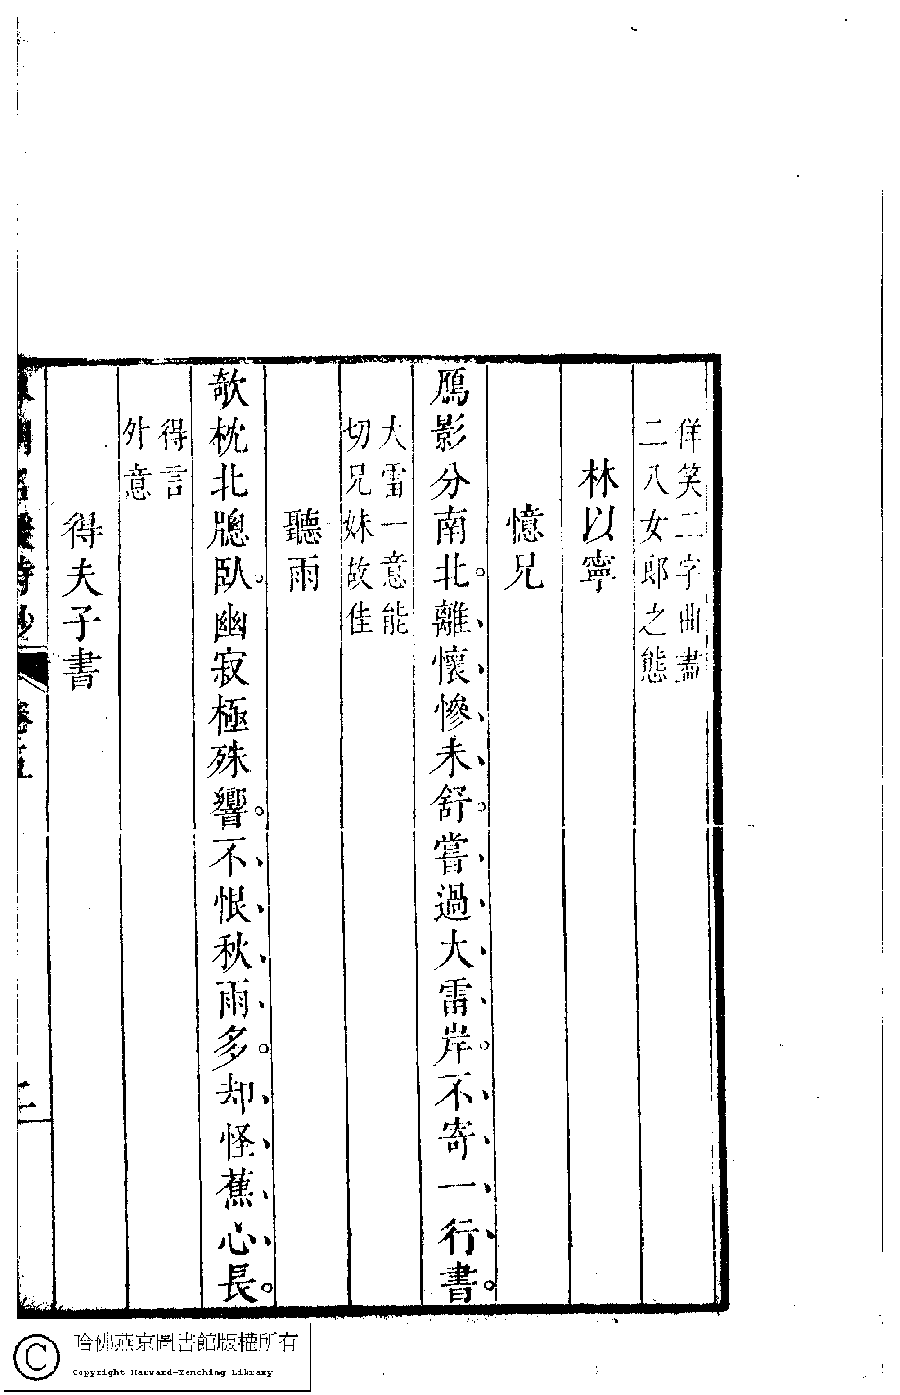 佯笑二字曲盡
二八女郎之態
林以寧
憶兄
鴈影分南北。離懷慘未舒。嘗過大雷岸。不寄一行書。
大雷一意能
切兄妹故佳
聽雨
欹枕北牕臥。幽寂極殊響。不恨秋雨多。却怪蕉心長。
得言
外意
得夫子書
詩鈔
卷五
二
哈佛燕京圖書館版權所有
Copyright Harvard-Yenching Library